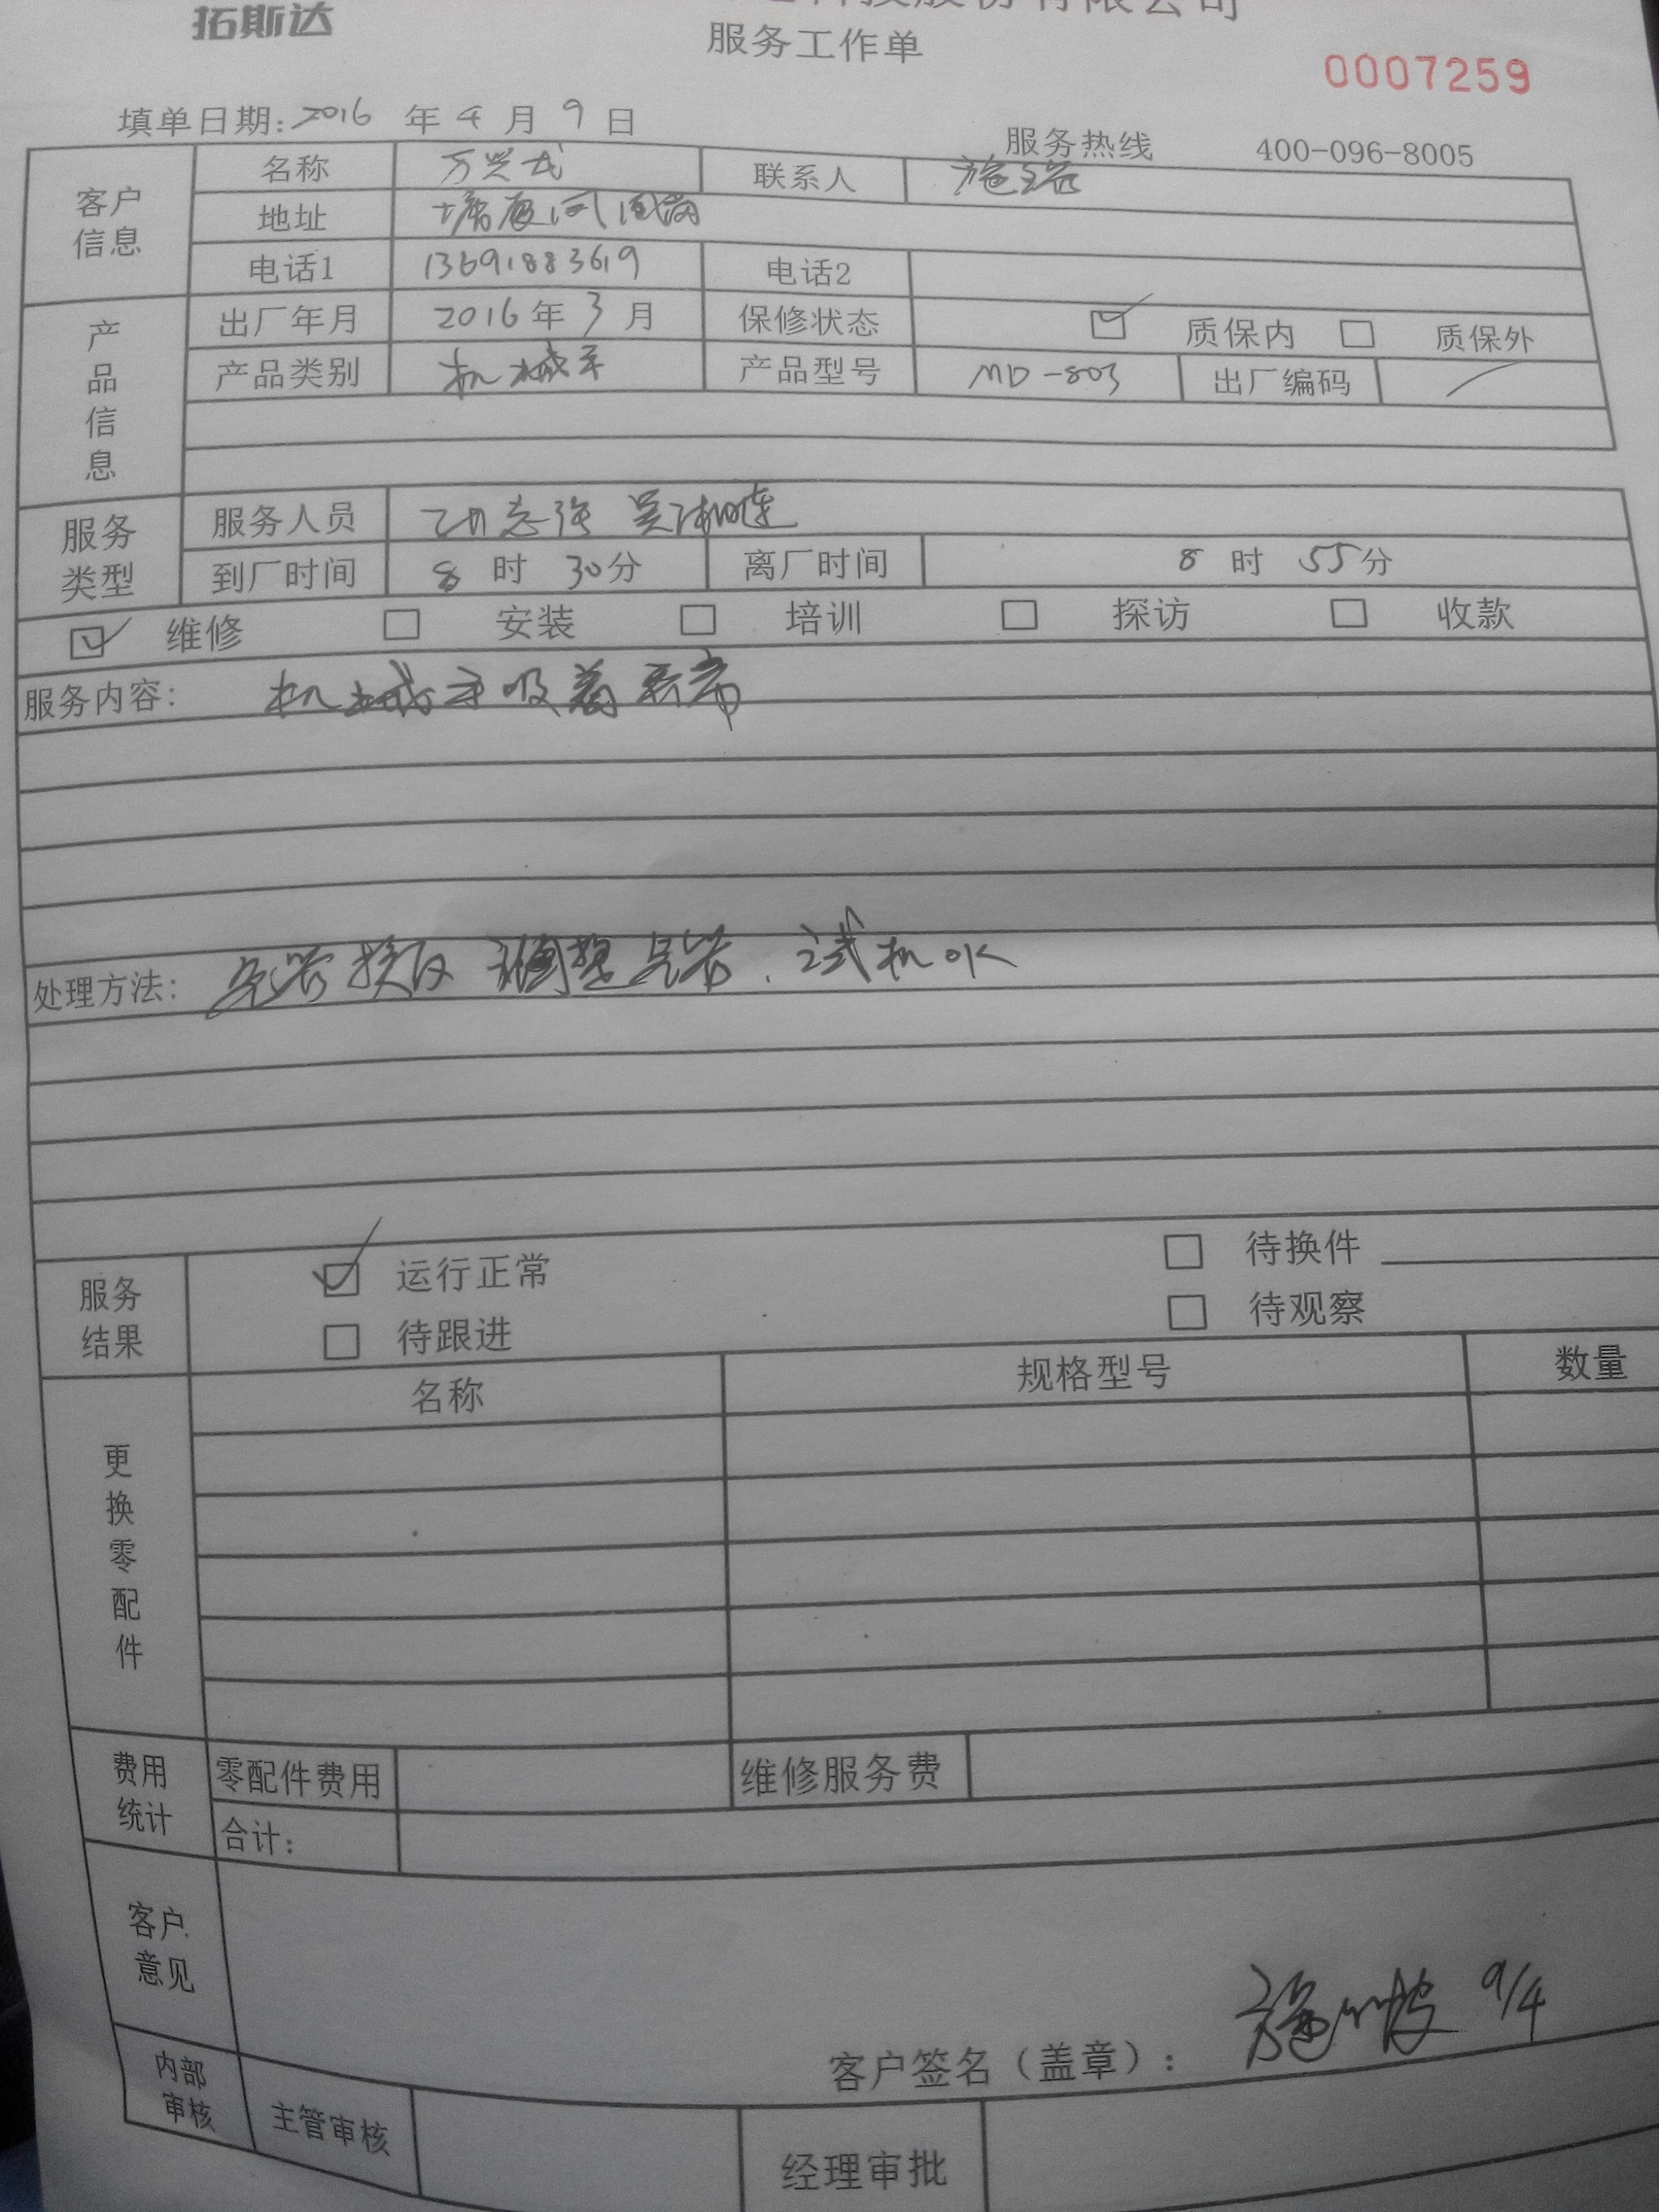 拓斯达
科技股份有限公司
服务工作单
0007259
填单日期: 2016 年 4 月 9 日
服务热线 400-096-8005
客户信息 名称 万兴龙 联系人 施
地址 塘厦凤凰岗
电话1 13691883619 电话2
产品信息 出厂年月 2016年 3 月 保修状态 质保内 质保外
产品类别 机械手 产品型号 MD-803 出厂编码
服务类型 服务人员 志强 吴
到厂时间 8 时 30分 离厂时间 8 时 55分
维修 安装 培训 探访 收款
服务内容: 机械手吸着异常
处理方法: 调整 试机OK
服务结果 运行正常 待换件
待跟进 待观察
更换零配件 名称 规格型号 数量
费用统计 零配件费用 维修服务费
合计:
客户意见
客户签名（盖章）: 施 9/4
内部审核 主管审核 经理审批